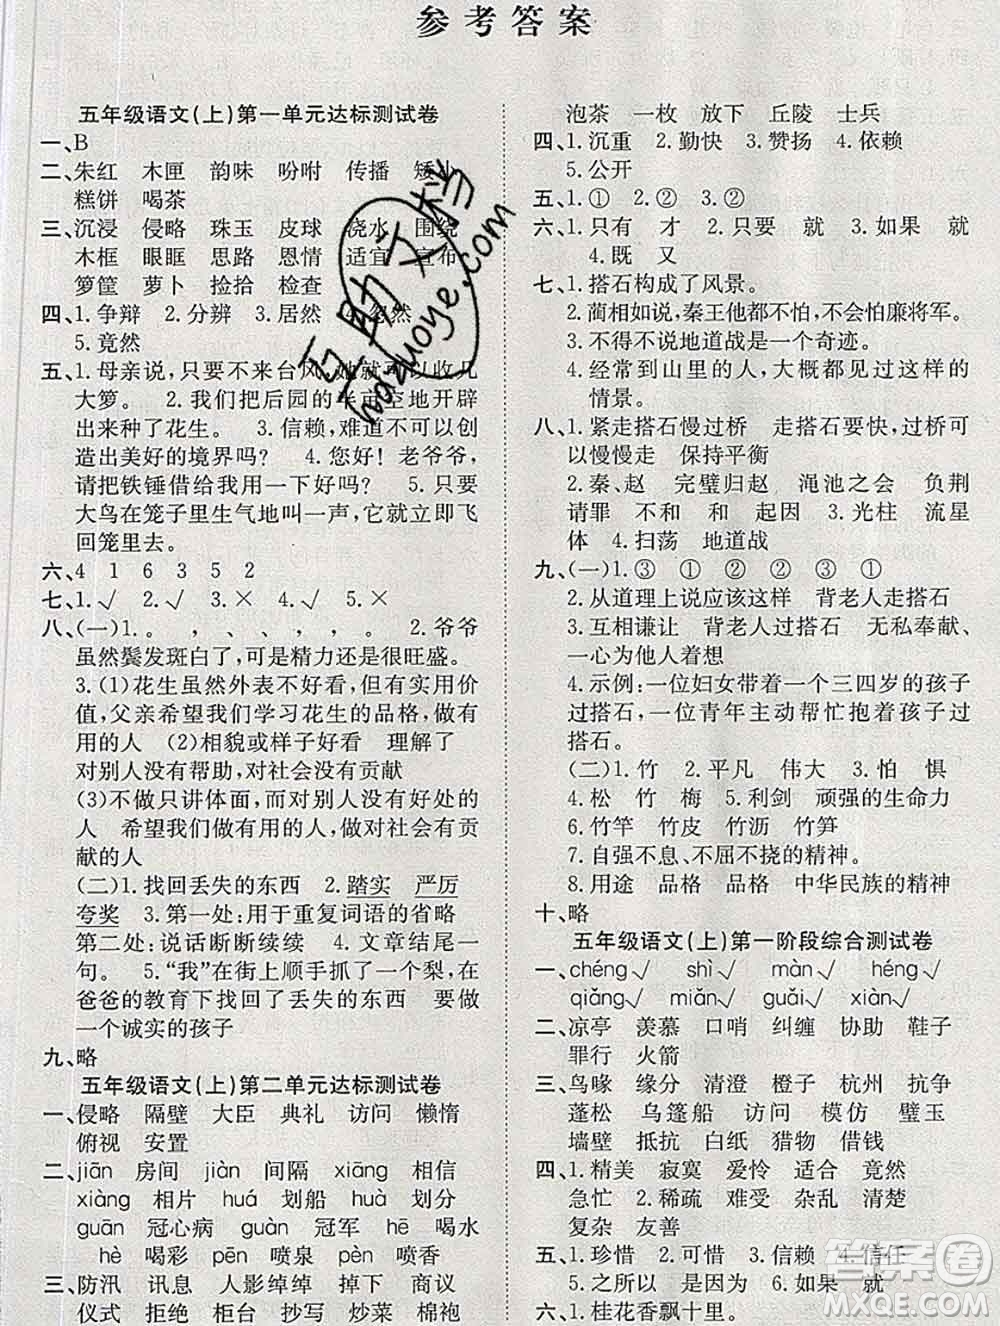 参考答案
五年级语文(上)第一单元达标测试卷
一、B
二、朱红 木匣 韵味 吩咐 传播 矮小
糕饼 喝茶
三、沉浸 侵略 珠玉 皮球 浇水 围绕
木框 眼眶 思路 恩情 适宜 宣布
箩筐 萝卜 捡拾 检查
四、1.争辩 2.分辨 3.居然 4.忽然
5.竟然
五、1.母亲说,只要不来台风,她就可以收几
大箩。 2.我们把后园的半亩空地开辟
出来种了花生。 3.信赖,难道不可以创
造出美好的境界吗? 4.您好!老爷爷,
请把铁锤借给我用一下好吗? 5.只要
大鸟在笼子里生气地叫一声,它就立即飞
回笼里去。
六、4 1 6 3 5 2
七、1.√ 2.√ 3.× 4.√ 5.×
八、(一)1.。 , 、 、 。 2.爷爷
虽然鬓发斑白了,可是精力还是很旺盛。
3.(1)花生虽然外表不好看,但很有实用价
值,父亲希望我们学习花生的品格,做有
用的人 (2)相貌或样子好看 理解了
对别人没有帮助,对社会没有贡献
(3)不做只讲体面,而对别人没有好处的
人 希望我们做有用的人,做对社会有贡
献的人
(二)1.找回丢失的东西 2.踏实 严厉
夸奖 3.第一处:用于重复词语的省略
第二处:说话断断续续 4.文章结尾一
句。 5.“我”在街上顺手抓了一个梨,在
爸爸的教育下找回了丢失的东西 要做
一个诚实的孩子
九、略
五年级语文(上)第二单元达标测试卷
一、侵略 隔壁 大臣 典礼 访问 懒惰
俯视 安置
二、jiān 房间 jiàn 间隔 xiāng 相信
xiàng 相片 huá 划船 huà 计划
guān 冠心病 guàn 冠军 hē 喝水
hè 喝彩 pēn 喷泉 pèn 喷香
三、防汛 讯息 人影绰绰 掉下 商议
仪式 拒绝 柜台 抄写 炒菜 棉袍
泡茶 一枚 放下 丘陵 士兵
四、1.沉重 2.勤快 3.赞扬 4.依赖
5.公开
五、1.① ② 2.② ①
六、1.只有 才 2.只要 就 3.如果 就
4.既 又
七、1.搭石构成了风景。
2.蔺相如说,秦王他都不怕,不会怕廉将军。
3.不得不说地道战是一个奇迹。
4.经常到山里的人,大概都见过这样的
情景。
八、1.紧走搭石慢过桥 走搭石要快,过桥可
以慢慢走 保持平衡
2.秦、赵 完璧归赵 渑池之会 负荆
请罪 不和 和 起因 3.光柱 流星
体 4.扫荡 地道战
九、(一)1.③ ① ② ③ ①
2.从道理上说应该这样 背老人过搭石
3.互相谦让 背老人过搭石 无私奉献、
一心为他人着想
4.示例:一位妇女带着一个三四岁的孩子
过搭石,一位青年主动帮忙抱着孩子过
搭石。
(二)1.竹 2.平凡 伟大 3.怕 惧
4.松 竹 梅 5.利剑 顽强的生命力
6.竹竿 竹皮 竹沥 竹笋
7.自强不息、不屈不挠的精神。
8.用途 品格 品格 中华民族的精神
十、略
五年级语文(上)第一阶段综合测试卷
一、chéng√ shì√ màn√ héng√
qiǎng√ miǎn√ guǎi√ xiàn√
二、凉亭 羡慕 口哨 纠缠 协助 鞋子
罪行 火箭
三、鸟喙 缘分 清澄 橙子 杭州 抗争
蓬松 乌篷船 访问 模仿 璧玉
墙壁 抵抗 白纸 猎物 借钱
四、1.精美 寂寞 爱怜 适合 竟然
急忙 2.稀疏 难受 杂乱 清楚
复杂 友善
五、1.珍惜 2.可惜 3.信赖 4.信任
5.之所以 是因为 6.如果 就
六、1.桂花香飘十里。
互助文档
huzuoye.com
答案圈
MXQE.COM